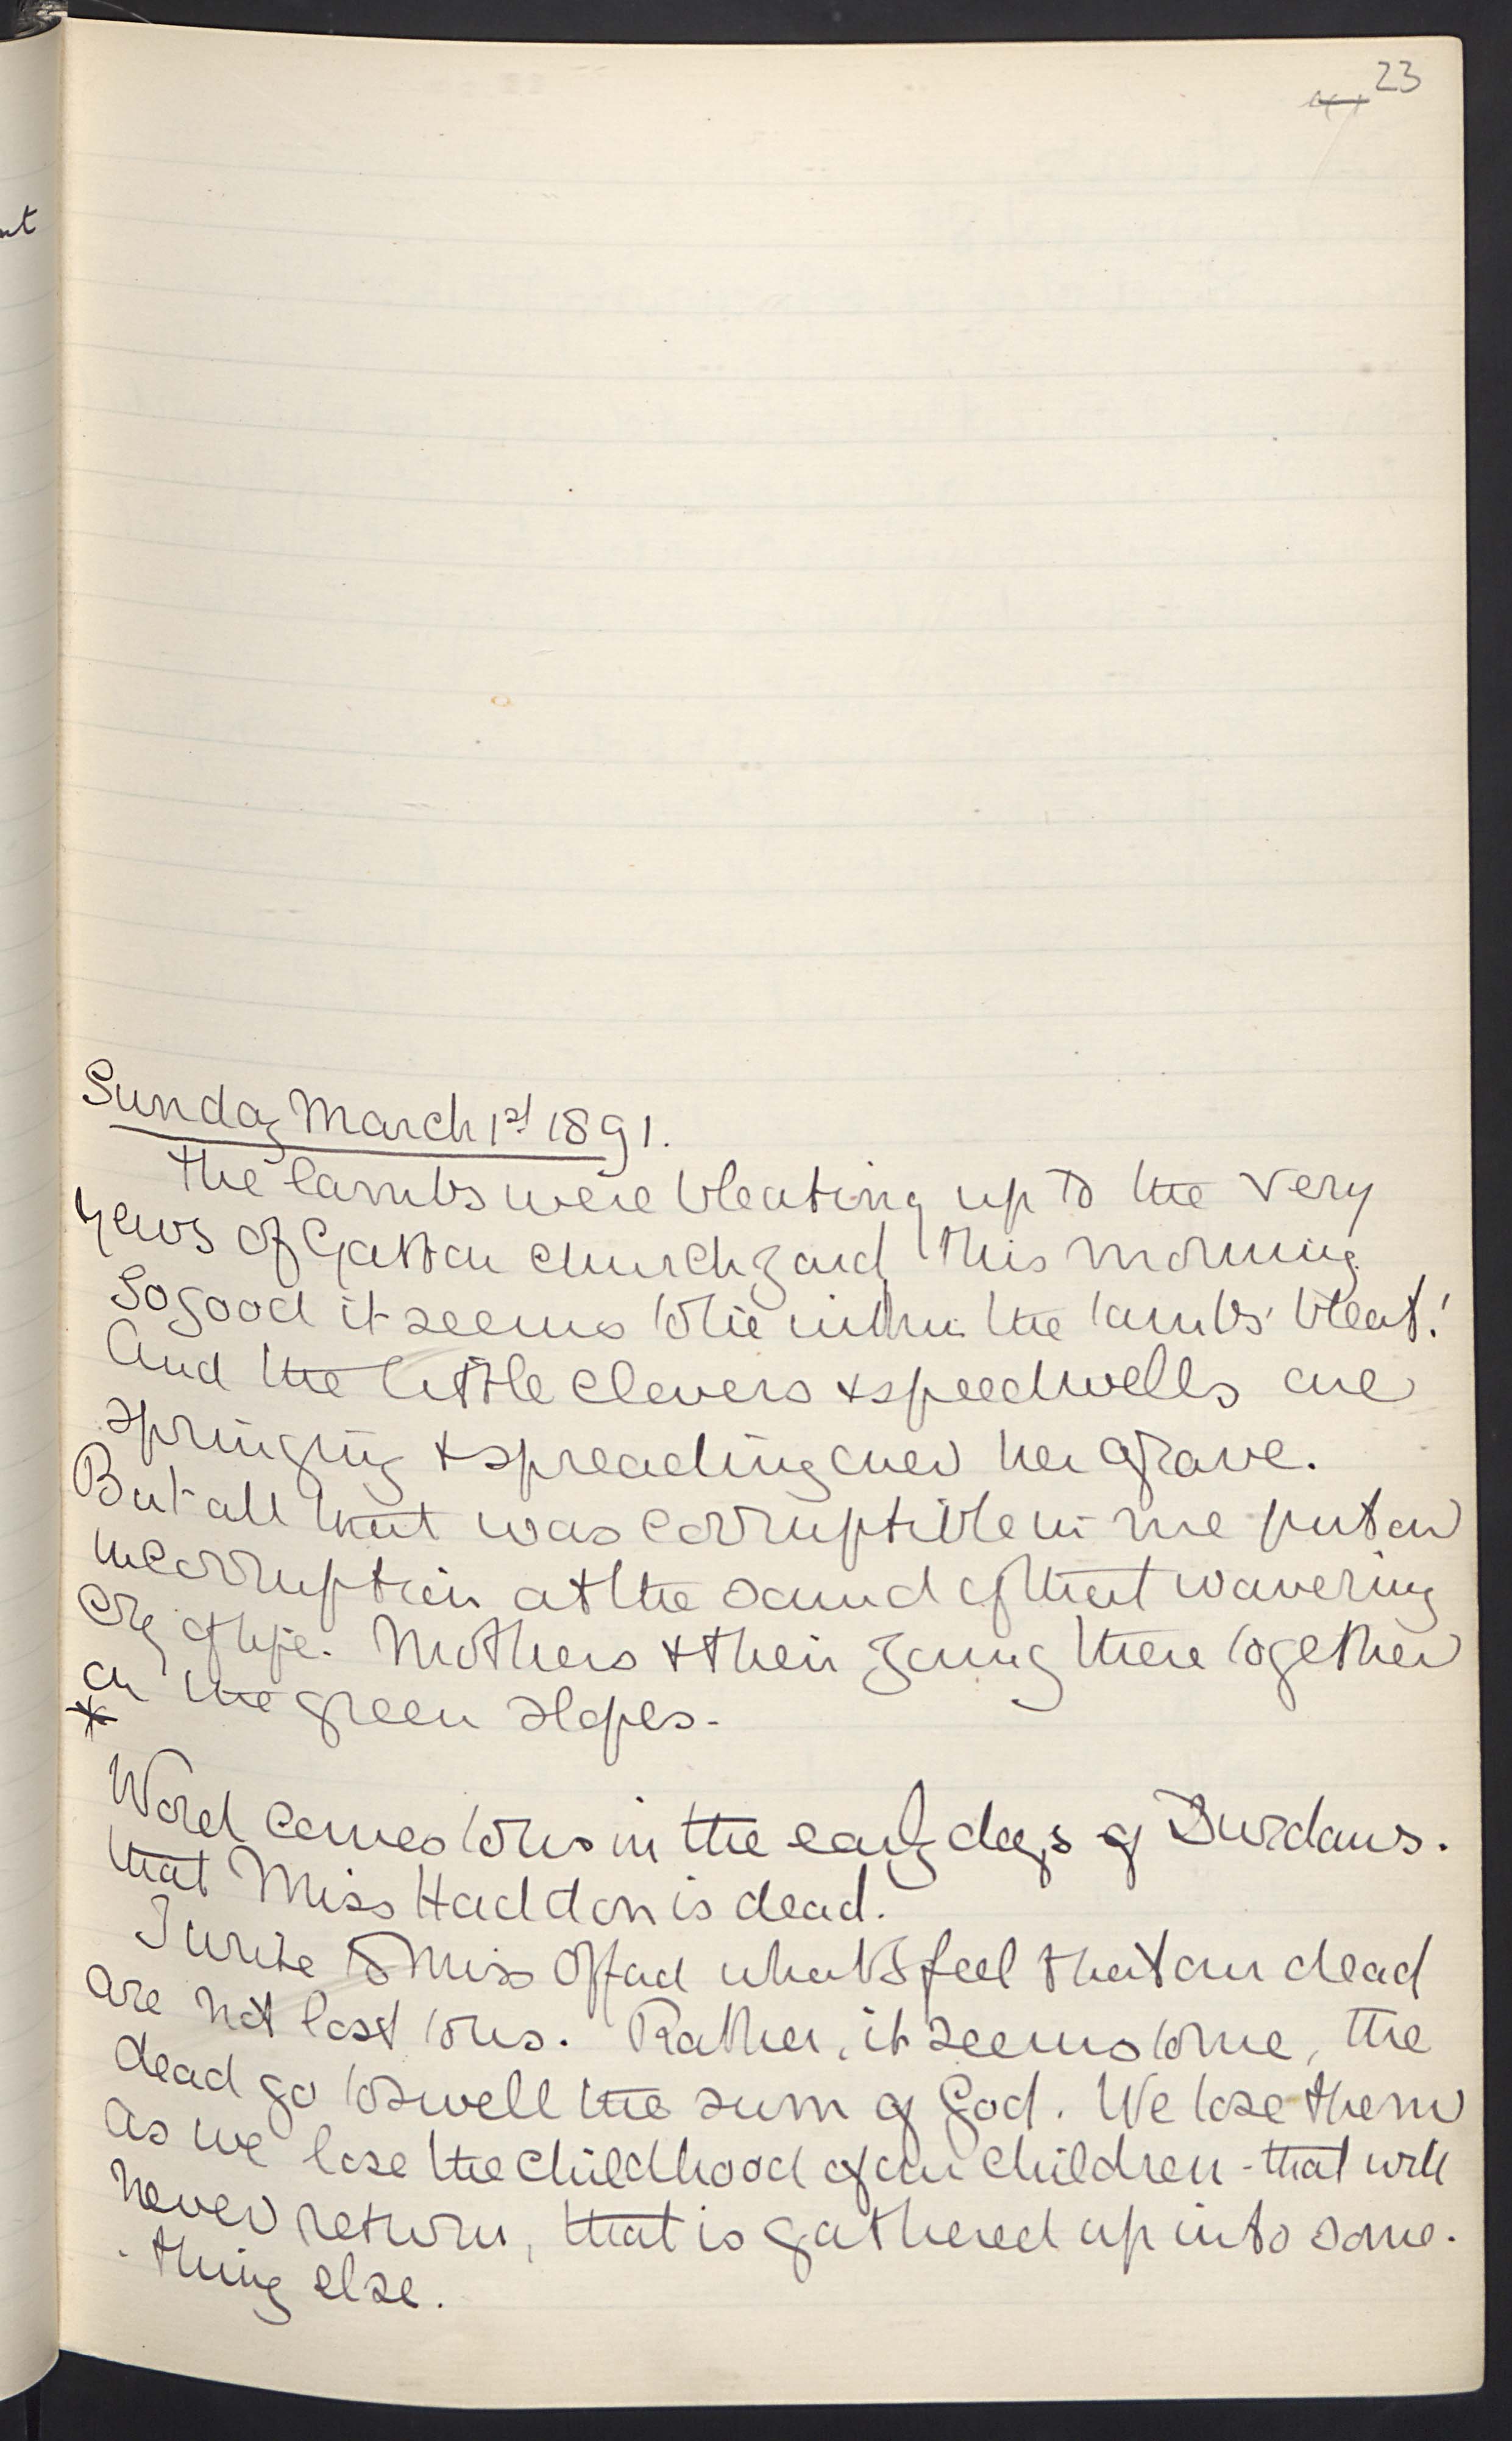 23
Sunday March 1st 1891.
The lambs were bleating up to the very
yews of Gatton churchyard this morning
So good it seems to lie within the lambs' bleat!
And the little clovers & speedwells are
springing & spreading over her grave.
But all that was corruptible in me put on
incorruption at the sound of that wavering
cry of life. Mothers & their young there together
on the green slopes.
Word comes to us in the early days of Durdans.
that Miss Haddon is dead.
I write to Miss Offad what I feel that our dead
are not lost to us. Rather, it seems to me, the
dead go to swell the sum of God. We lose them
as we lose the childhood of our children - that will
never return, that is gathered up into some-
-thing else.